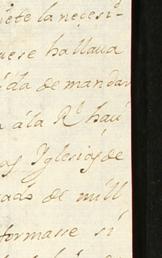 iete la necesi-
uese hallaua
ida de mandar
a â la Rl hau
as Yglesias de
ado de mill
formasse si